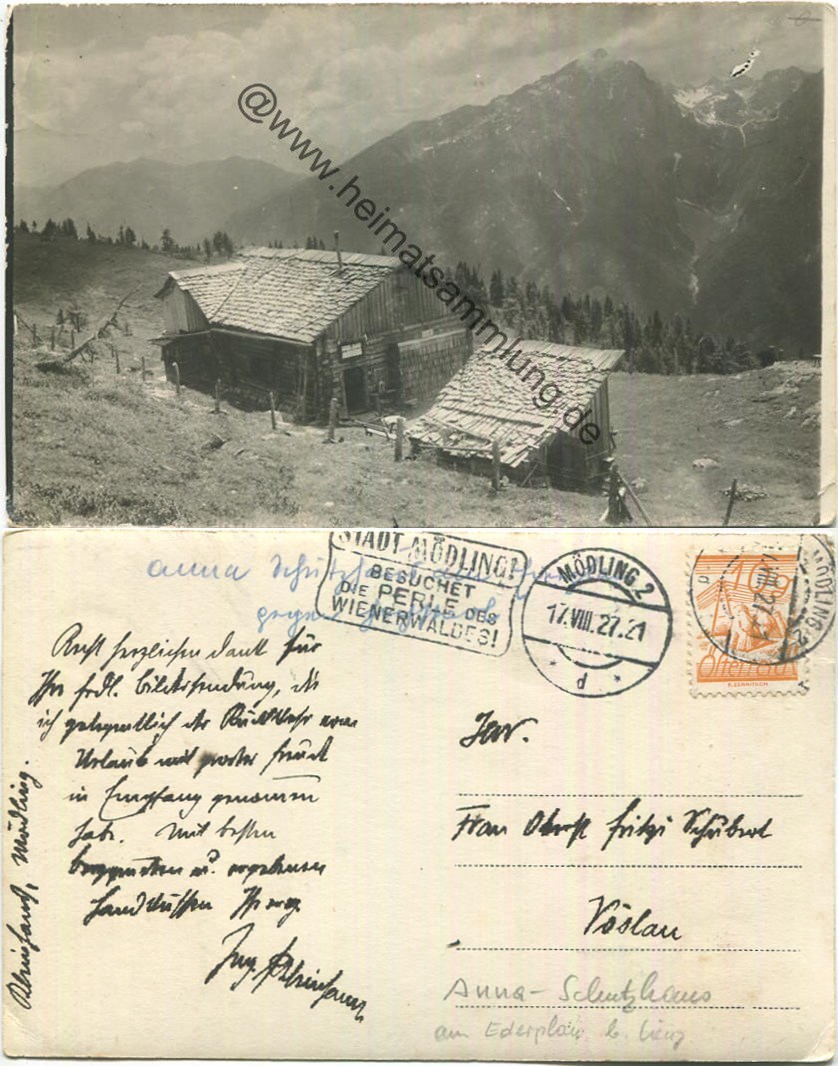 @www.heimatsammlung.de
STADT MÖDLING!
BESUCHET
DIE PERLE DES
WIENERWALDES!
MÖDLING 2
17.VIII.27.21
d
MÖDLING 2
VIII.27
100
Österreich
Anna
gegen
Recht herzlichen Dank für
Ihre frdl. Bildersendung, die
ich gelegentlich der Rückkehr vom
Urlaub mit großer Freude
in Empfang genommen
habe. Mit besten
Berggrüßen u. ergebenen
Handküssen Ihr erg.
Ing.
Mödling.
Frau Oberst Fritzi Schubert
Vöslau
Anna-Schutzhaus
am Ederplan b. Lienz